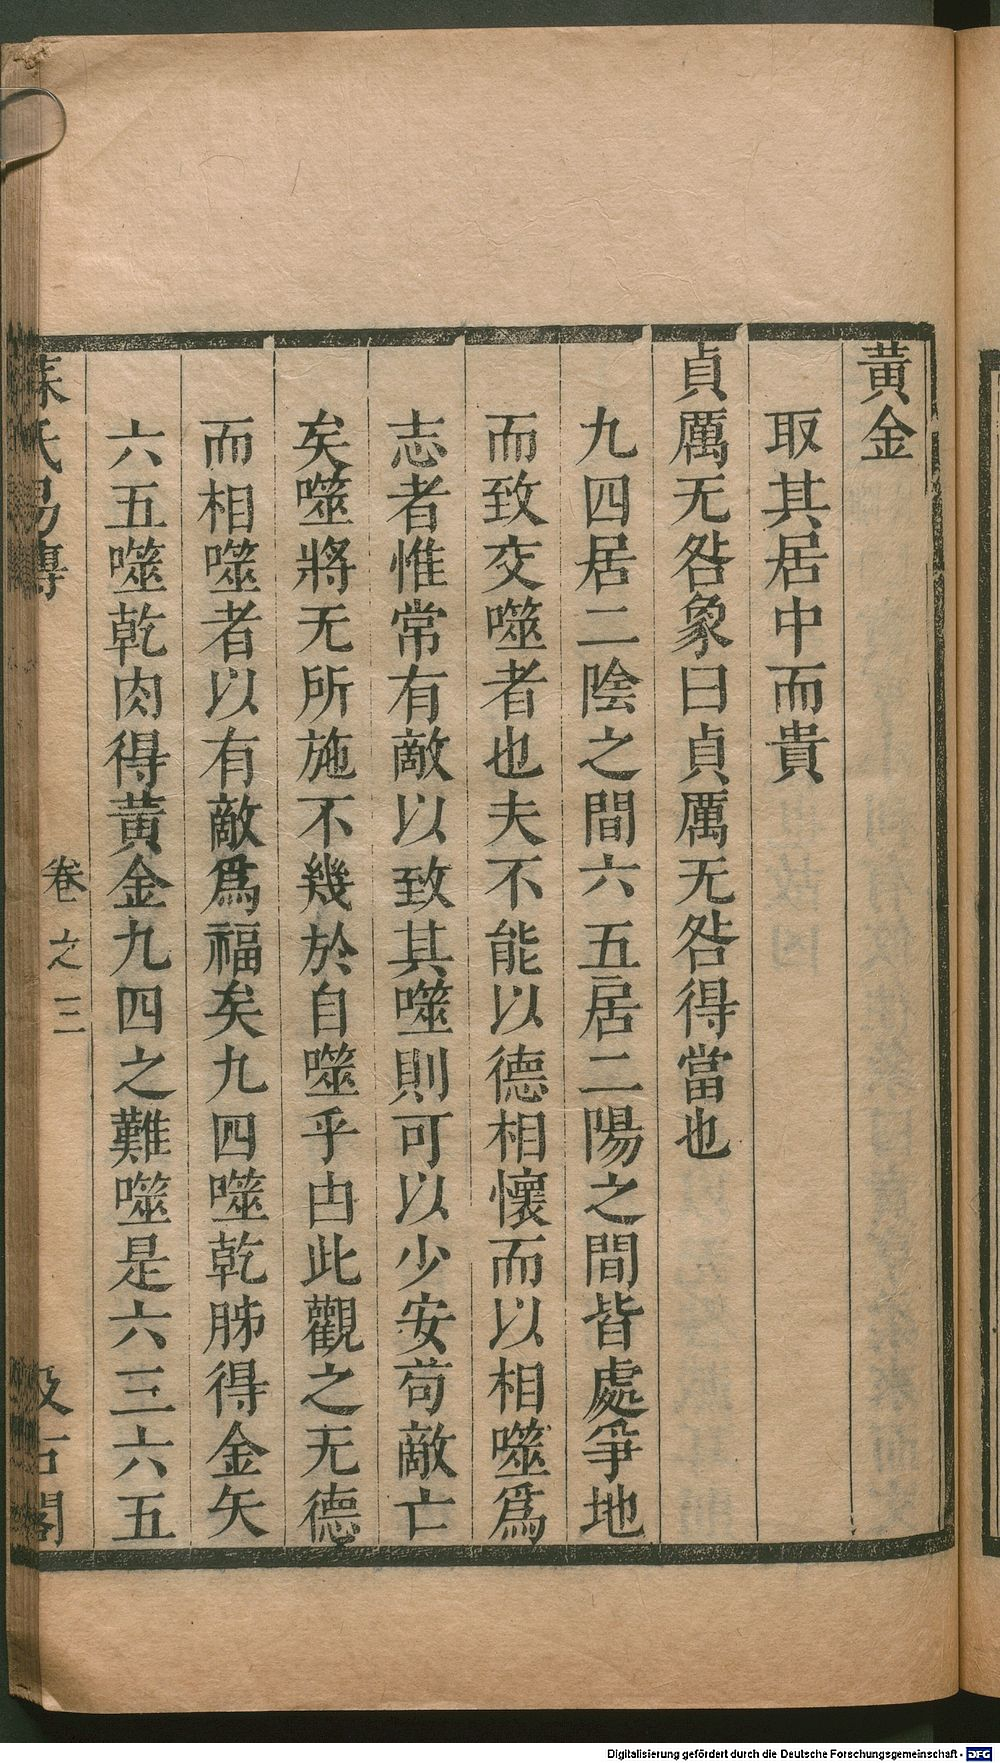 黃金
取其居中而貴
貞厲无咎象曰貞厲无咎得當也
九四居二陰之間六五居二陽之間皆處爭地
而致交噬者也夫不能以德相懷而以相噬爲
志者惟常有敵以致其噬則可以少安苟敵亡
矣噬將无所施不幾於自噬乎由此觀之无德
而相噬者以有敵爲福矣九四噬乾胏得金矢
六五噬乾肉得黃金九四之難噬是六三六五
蘇氏易傳 卷之三 汲古閣
Digitalisierung gefördert durch die Deutsche Forschungsgemeinschaft - DFG